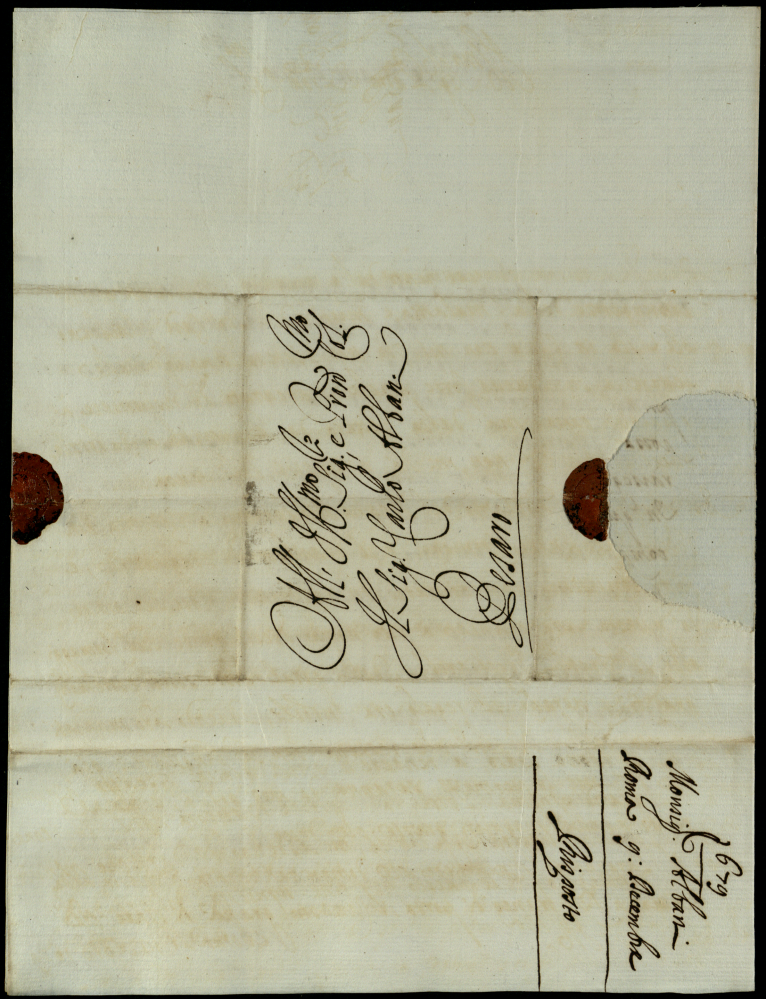 All. Ill.mo Sig.r e Pron Col.mo
Il Sig. Carlo Albani
Pesaro
1679
Monsig. Albani
Roma 9: Decembre
Risposto